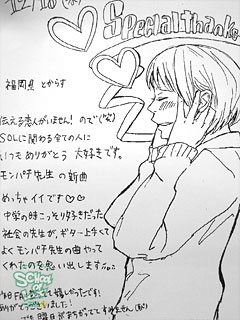 Special thanks
福岡県 とからす
伝える恋人がいません! ので(笑)
SOLに関わる全ての人に
いつもありがとう 大好きです。
モンパチ先生 の新曲
めっちゃイイです♡♡
中学の時こっそり好きだった
社会の先生が、ギター上手くて
よくモンパチ先生の曲やって
くれたのを思い出します
School of
嬉しかったです!
ありがとうございました!